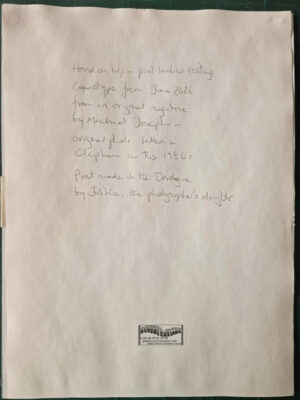 Hand on hip – pool ladies resting
Cyanotype from June 2016
from an original negative
by Michael Joseph –
original photo taken in
Clapham in the 1980s
Print made in the Dordogne
by Justine, the photographer's daughter.